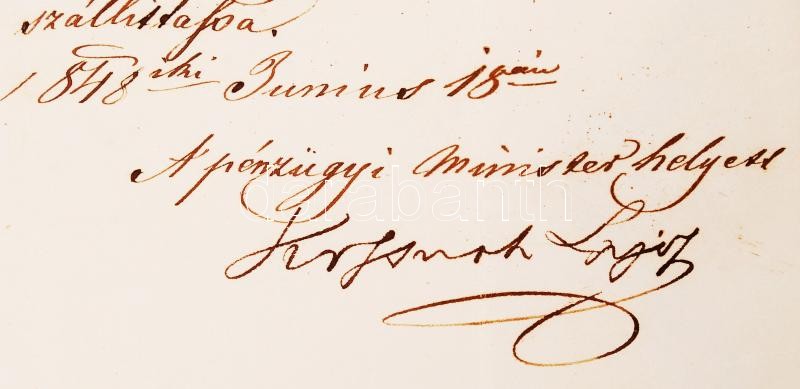 szállittassa.
1848iki Junius 18án
A' pénzügyi Minister helyett
Kossuth Lajos
darabanth